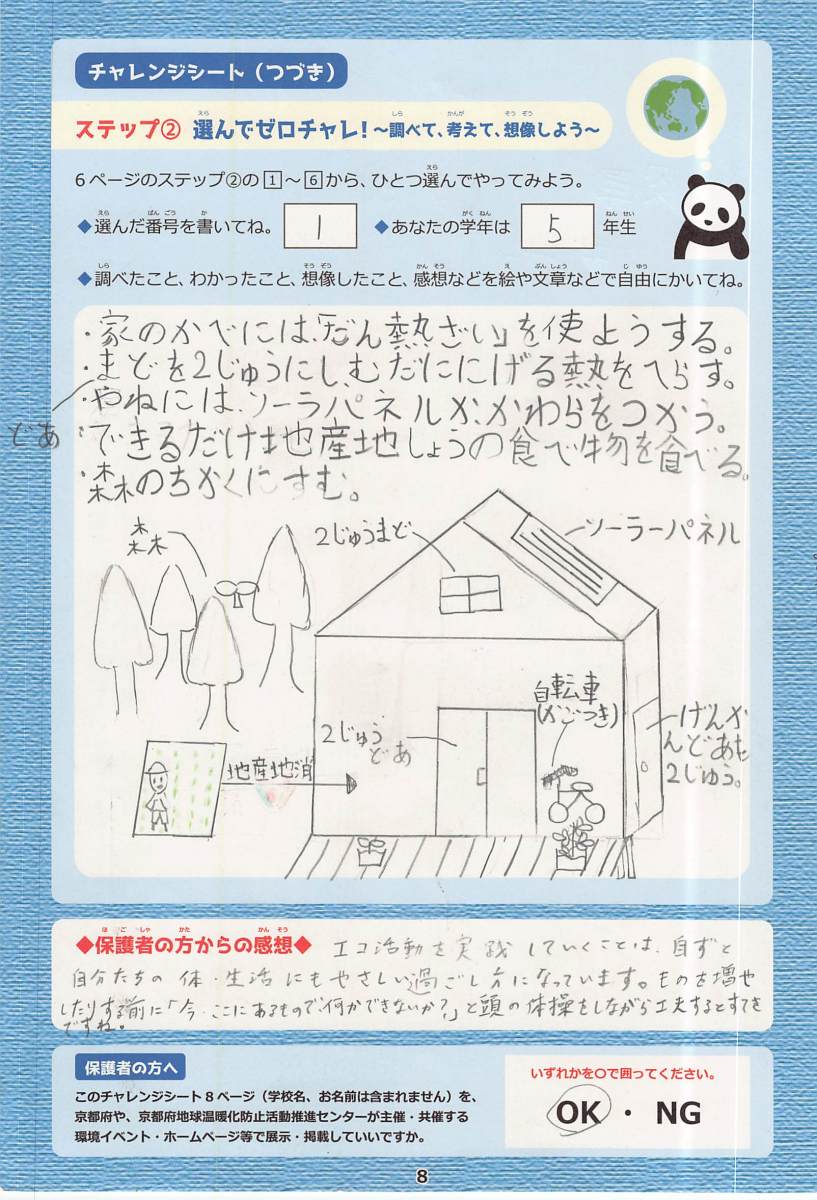 チャレンジシート（つづき）
ステップ② 選んでゼロチャレ！～調べて、考えて、想像しよう～
6ページのステップ②の1～6から、ひとつ選んでやってみよう。
◆選んだ番号を書いてね。 1 ◆あなたの学年は 5 年生
◆調べたこと、わかったこと、想像したこと、感想などを絵や文章などで自由にかいてね。
・家のかべには、「だん熱ざい」を使ようする。
・まどを2じゅうにし、むだににげる熱をへらす。
どあ
・やねには、ソーラパネルか、かわらをつかう。
・できるだけ地産地しょうの食べ物を食べる。
・森のちかくにすむ。
森
2じゅうまど
ソーラーパネル
自転車
(かごつき)
2じゅう
どあ
げんか
んどあも
2じゅう。
地産地消
◆保護者の方からの感想◆ エコ活動を実践していくことは、自ずと
自分たちの体・生活にもやさしい過ごし方になっています。ものを増や
したりする前に「今、ここにあるもので、何かできないか?」と頭の体操をしながら工夫するとすてき
ですね。
保護者の方へ
このチャレンジシート8ページ（学校名、お名前は含まれません）を、
京都府や、京都府地球温暖化防止活動推進センターが主催・共催する
環境イベント・ホームページ等で展示・掲載していいですか。
いずれかを○で囲ってください。
OK ・ NG
8